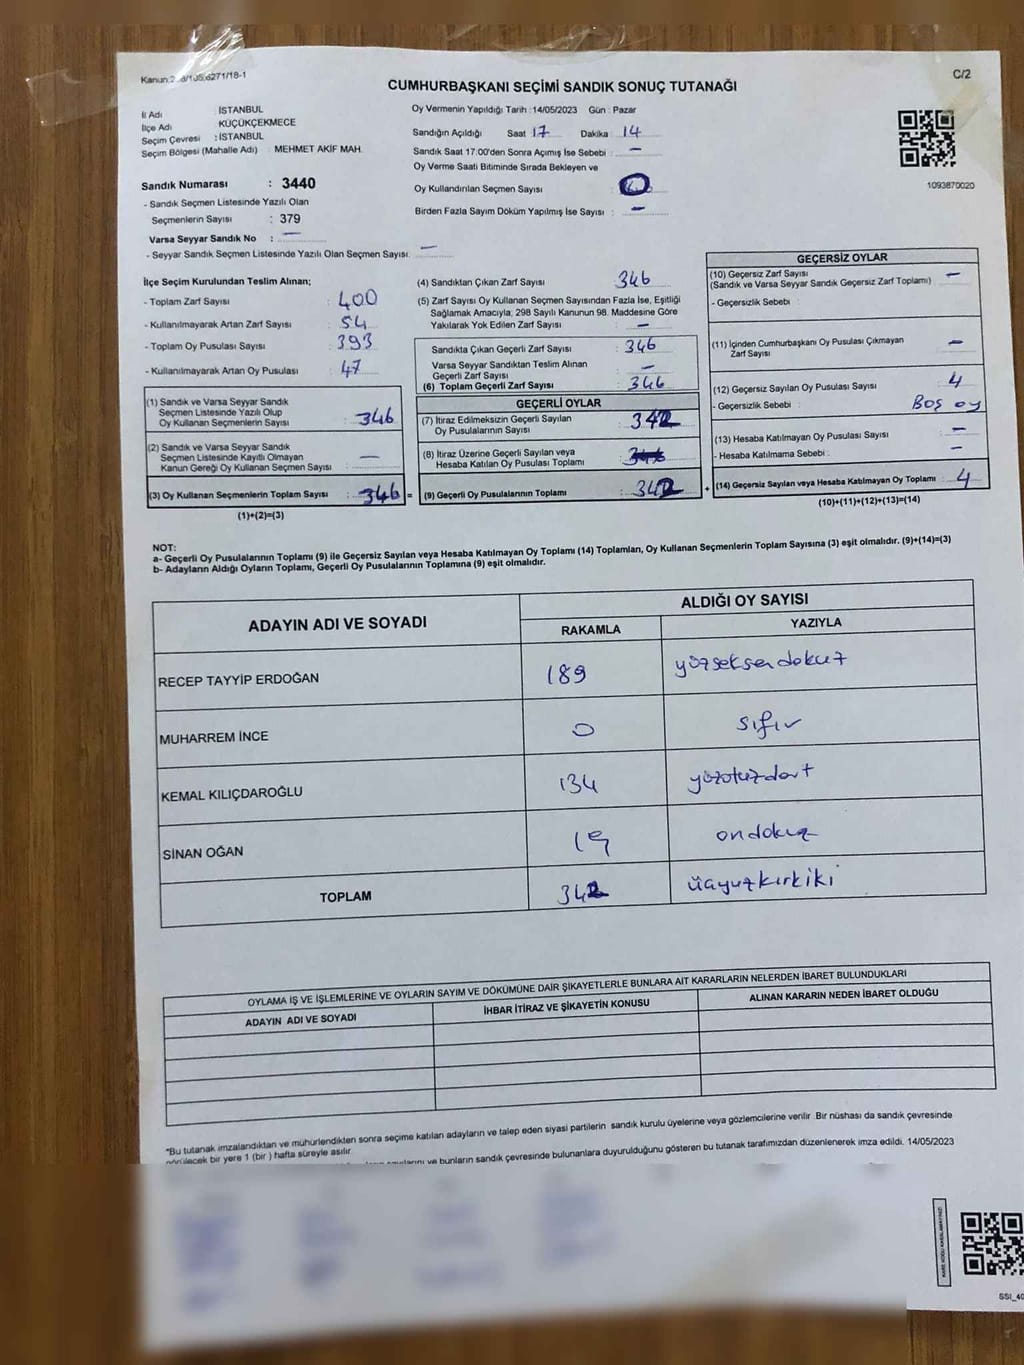 C/2
CUMHURBAŞKANI SEÇİMİ SANDIK SONUÇ TUTANAĞI
İl Adı İSTANBUL
İlçe Adı KÜÇÜKÇEKMECE
Seçim Çevresi : İSTANBUL
Seçim Bölgesi (Mahalle Adı) : MEHMET AKİF MAH.
Sandık Numarası : 3440
- Sandık Seçmen Listesinde Yazılı Olan
Seçmenlerin Sayısı : 379
Varsa Seyyar Sandık No : —
- Seyyar Sandık Seçmen Listesinde Yazılı Olan Seçmen Sayısı. —
Oy Vermenin Yapıldığı Tarih : 14/05/2023 Gün : Pazar
Sandığın Açıldığı Saat 17 Dakika 14
Sandık Saat 17:00'den Sonra Açımış İse Sebebi : —
Oy Verme Saati Bitiminde Sırada Bekleyen ve
Oy Kullandırılan Seçmen Sayısı :
Birden Fazla Sayım Döküm Yapılmış İse Sayısı : —
1093870020
İlçe Seçim Kurulundan Teslim Alınan;
- Toplam Zarf Sayısı : 400
- Kullanılmayarak Artan Zarf Sayısı : 54
- Toplam Oy Pusulası Sayısı : 393
- Kullanılmayarak Artan Oy Pusulası : 47
(1) Sandık ve Varsa Seyyar Sandık
Seçmen Listesinde Yazılı Olup
Oy Kullanan Seçmenlerin Sayısı : 346
(2) Sandık ve Varsa Seyyar Sandık
Seçmen Listesinde Kayıtlı Olmayan
Kanun Gereği Oy Kullanan Seçmen Sayısı : —
(3) Oy Kullanan Seçmenlerin Toplam Sayısı : 346 =
(1)+(2)=(3)
(4) Sandıktan Çıkan Zarf Sayısı : 346
(5) Zarf Sayısı Oy Kullanan Seçmen Sayısından Fazla İse, Eşitliği
Sağlamak Amacıyla; 298 Sayılı Kanunun 98. Maddesine Göre
Yakılarak Yok Edilen Zarf Sayısı : —
Sandıkta Çıkan Geçerli Zarf Sayısı : 346
Varsa Seyyar Sandıktan Teslim Alınan
Geçerli Zarf Sayısı : —
(6) Toplam Geçerli Zarf Sayısı : 346
GEÇERLİ OYLAR
(7) İtiraz Edilmeksizin Geçerli Sayılan
Oy Pusulalarının Sayısı : 342
(8) İtiraz Üzerine Geçerli Sayılan veya
Hesaba Katılan Oy Pusulası Toplamı :
(9) Geçerli Oy Pusulalarının Toplamı : 342 +
GEÇERSİZ OYLAR
(10) Geçersiz Zarf Sayısı —
(Sandık ve Varsa Seyyar Sandık Geçersiz Zarf Toplamı)
- Geçersizlik Sebebi :
(11) İçinden Cumhurbaşkanı Oy Pusulası Çıkmayan
Zarf Sayısı : —
(12) Geçersiz Sayılan Oy Pusulası Sayısı 4
- Geçersizlik Sebebi : Boş oy
(13) Hesaba Katılmayan Oy Pusulası Sayısı —
- Hesaba Katılmama Sebebi : —
(14) Geçersiz Sayılan veya Hesaba Katılmayan Oy Toplamı : 4
(10)+(11)+(12)+(13)=(14)
NOT:
a- Geçerli Oy Pusulalarının Toplamı (9) ile Geçersiz Sayılan veya Hesaba Katılmayan Oy Toplamı (14) Toplamları, Oy Kullanan Seçmenlerin Toplam Sayısına (3) eşit olmalıdır. (9)+(14)=(3)
b- Adayların Aldığı Oyların Toplamı, Geçerli Oy Pusulalarının Toplamına (9) eşit olmalıdır.
ADAYIN ADI VE SOYADI ALDIĞI OY SAYISI
RAKAMLA YAZIYLA
RECEP TAYYİP ERDOĞAN 189 yüzseksendokuz
MUHARREM İNCE 0 sıfır
KEMAL KILIÇDAROĞLU 134 yüzotuzdört
SİNAN OĞAN 19 ondokuz
TOPLAM 342 üçyüzkırkiki
OYLAMA İŞ VE İŞLEMLERİNE VE OYLARIN SAYIM VE DÖKÜMÜNE DAİR ŞİKAYETLERLE BUNLARA AİT KARARLARIN NELERDEN İBARET BULUNDUKLARI
ADAYIN ADI VE SOYADI İHBAR İTİRAZ VE ŞİKAYETİN KONUSU ALINAN KARARIN NEDEN İBARET OLDUĞU
"Bu tutanak imzalandıktan ve mühürlendikten sonra seçime katılan adayların ve talep eden siyasi partilerin sandık kurulu üyelerine veya gözlemcilerine verilir. Bir nüshası da sandık çevresinde
görülecek bir yere 1 (bir) hafta süreyle asılır.
ve bunların sandık çevresinde bulunanlara duyurulduğunu gösteren bu tutanak tarafımızdan düzenlenerek imza edildi. 14/05/2023